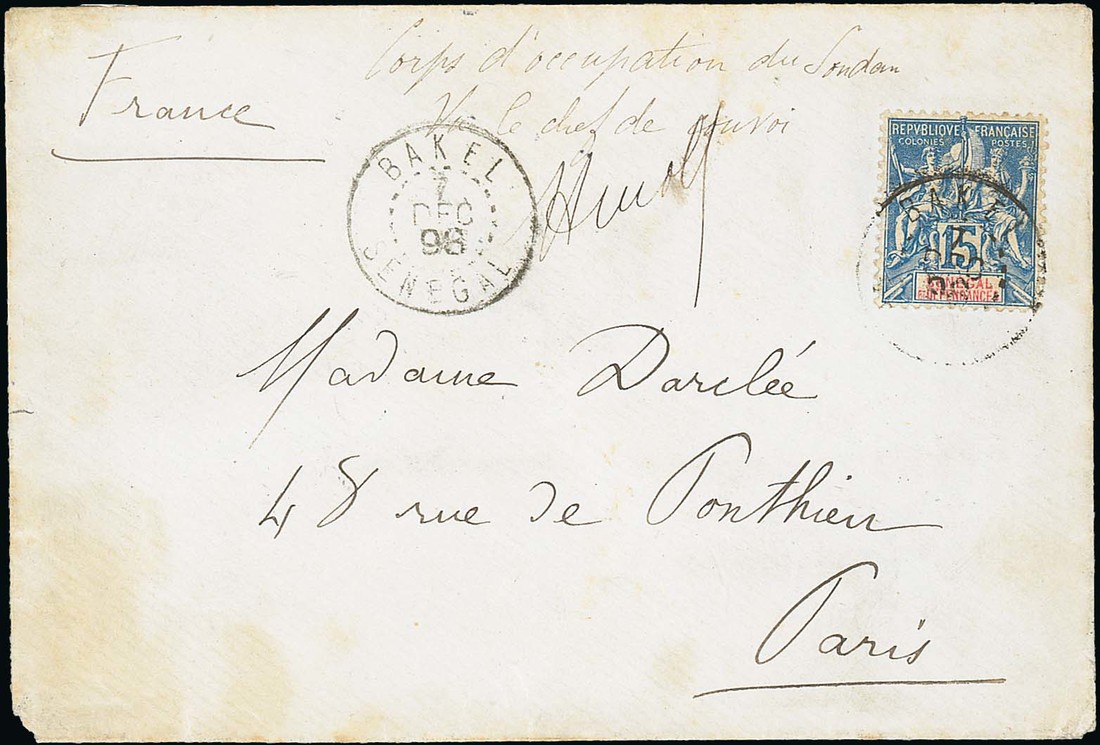 Corps d'occupation du Soudan
France
Vu le chef de convoi
BAKEL
7
DEC
96
SÉNÉGAL
REPVBLIQVE FRANÇAISE
COLONIES POSTES
15
SÉNÉGAL
ET DÉPENDANCES
BAKEL
7
DEC
Madame Darclée
48 rue de Ponthieu
Paris